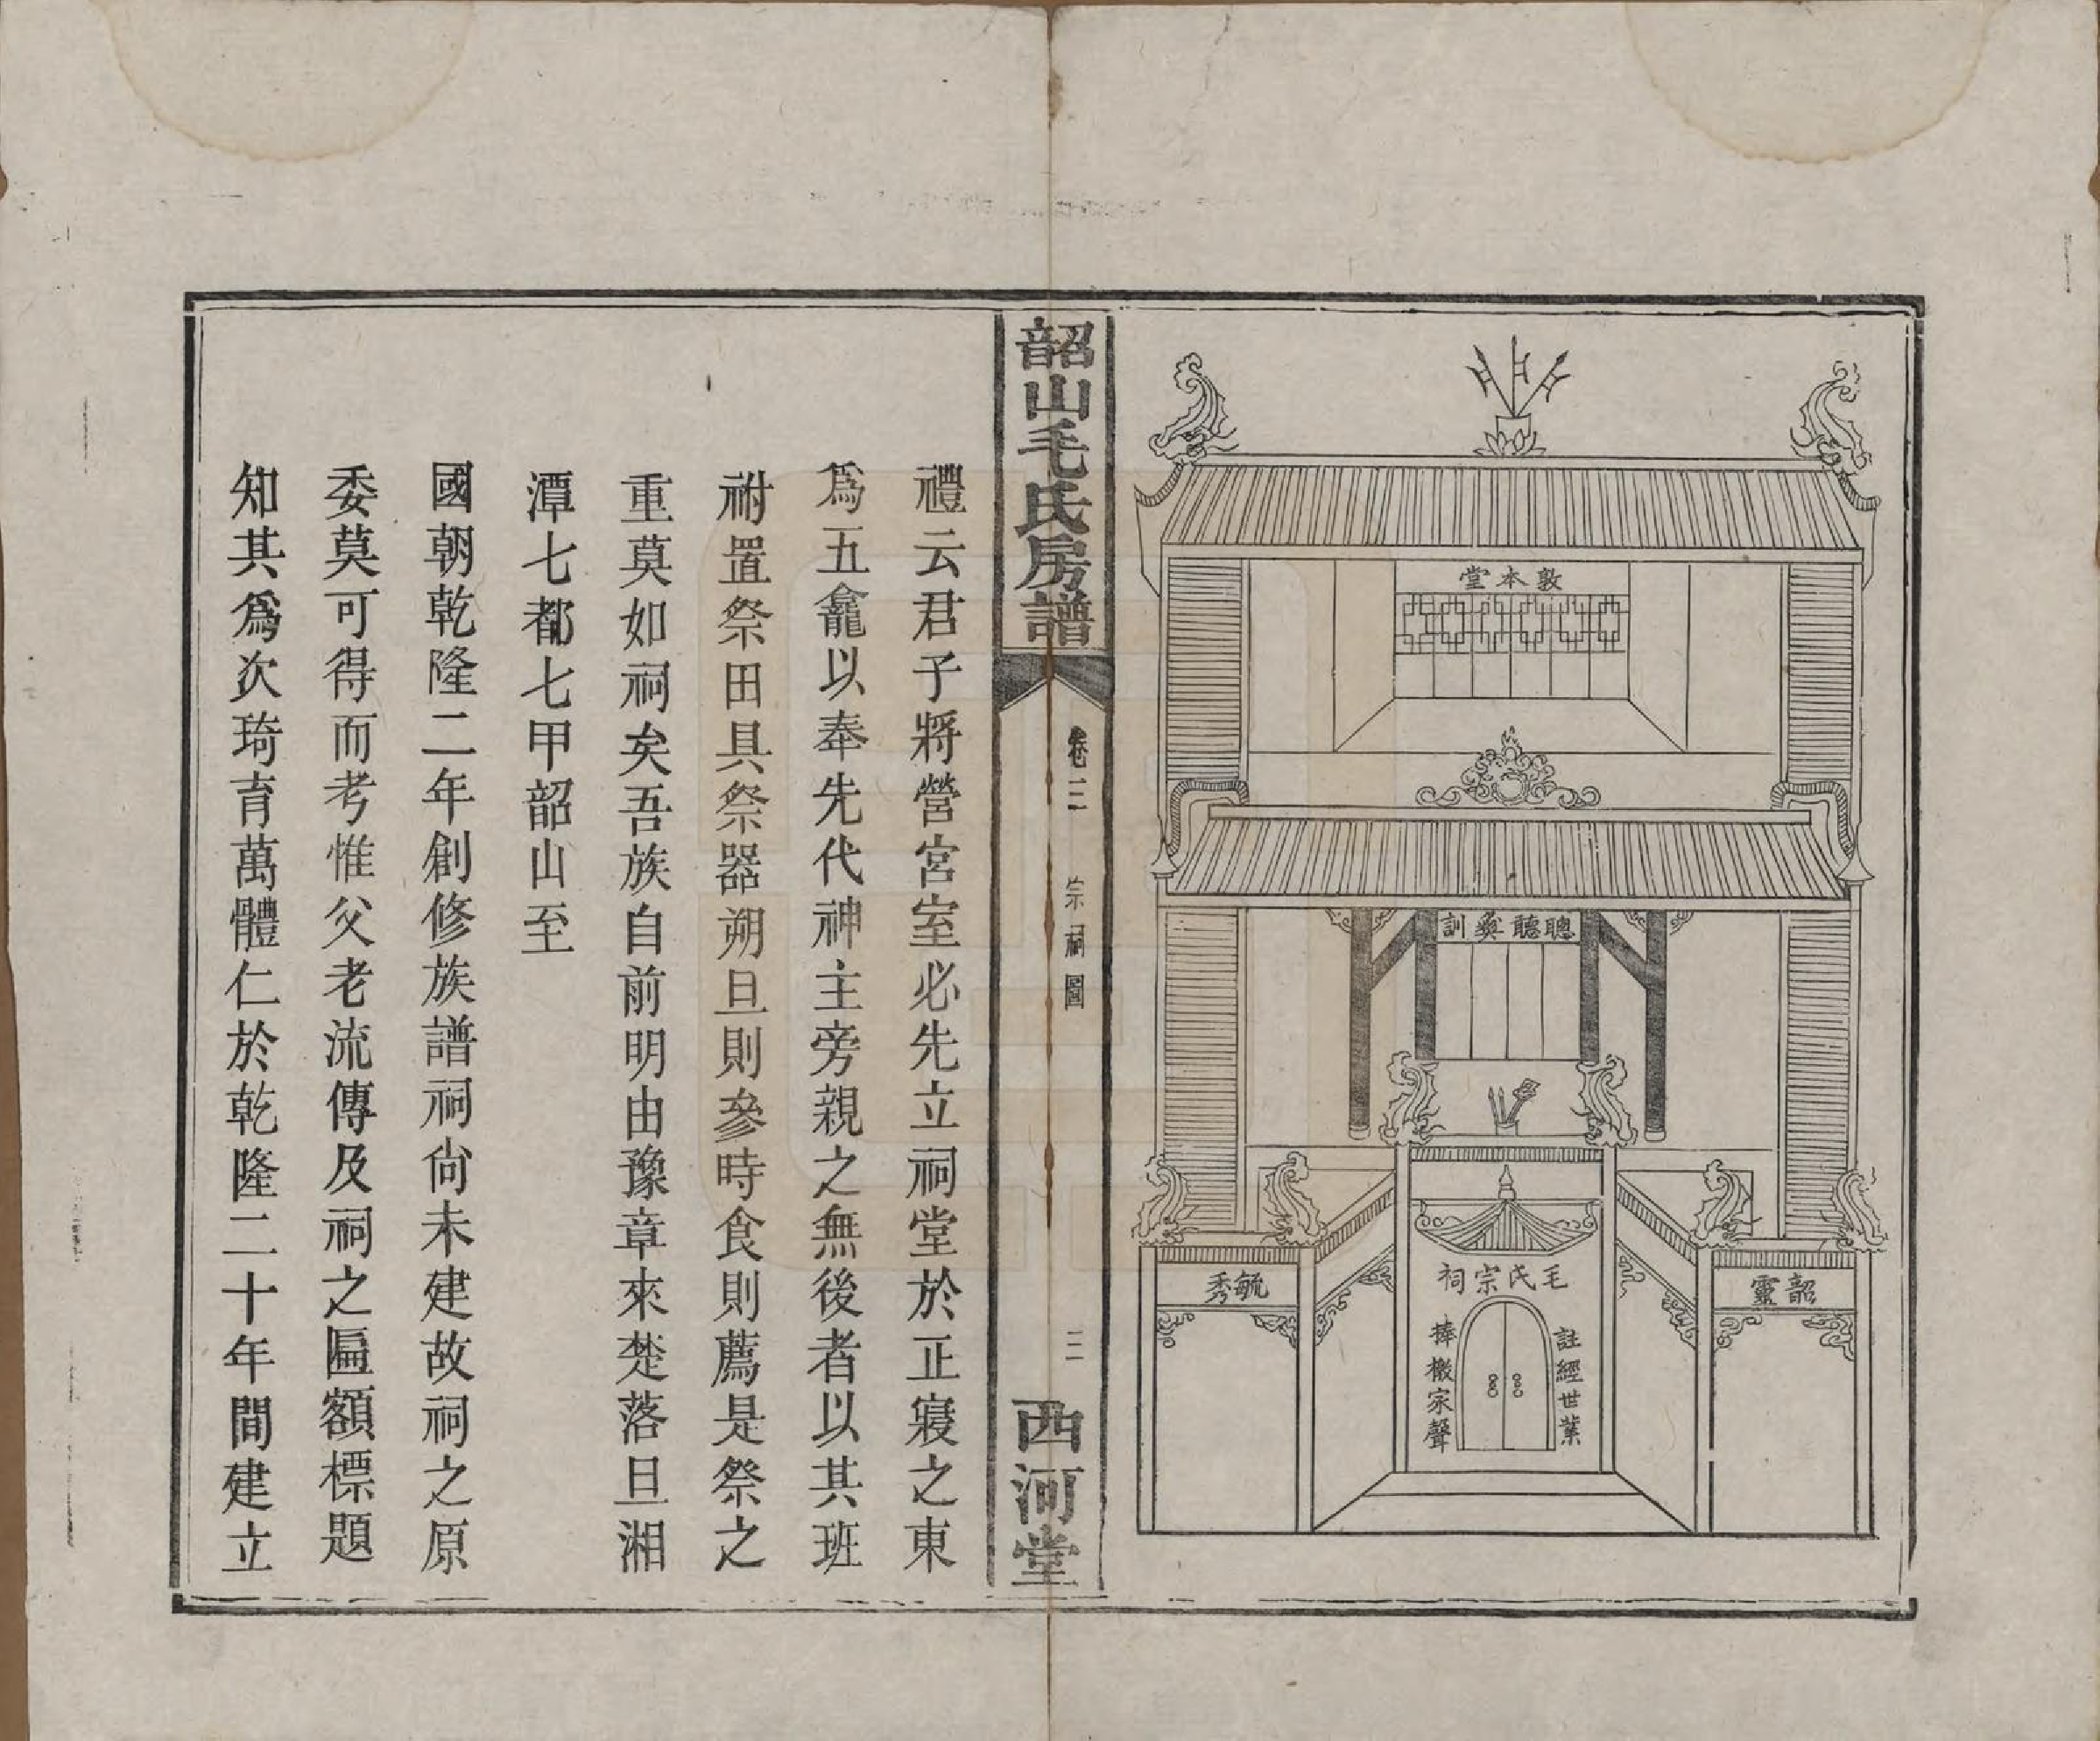 敦本堂
聰聽彝訓
韶靈
毛氏宗祠
毓秀
註經世業
捧檄家聲
韶山毛氏房譜
卷二
宗祠圖
二
西河堂
禮云君子將營宮室必先立祠堂於正寢之東
爲五龕以奉先代神主旁親之無後者以其班
祔置祭田具祭器朔旦則參時食則薦是祭之
重莫如祠矣吾族自前明由豫章來楚落旦湘
潭七都七甲韶山至
國朝乾隆二年創修族譜祠尙未建故祠之原
委莫可得而考惟父老流傳及祠之匾額標題
知其爲次琦育萬體仁於乾隆二十年間建立